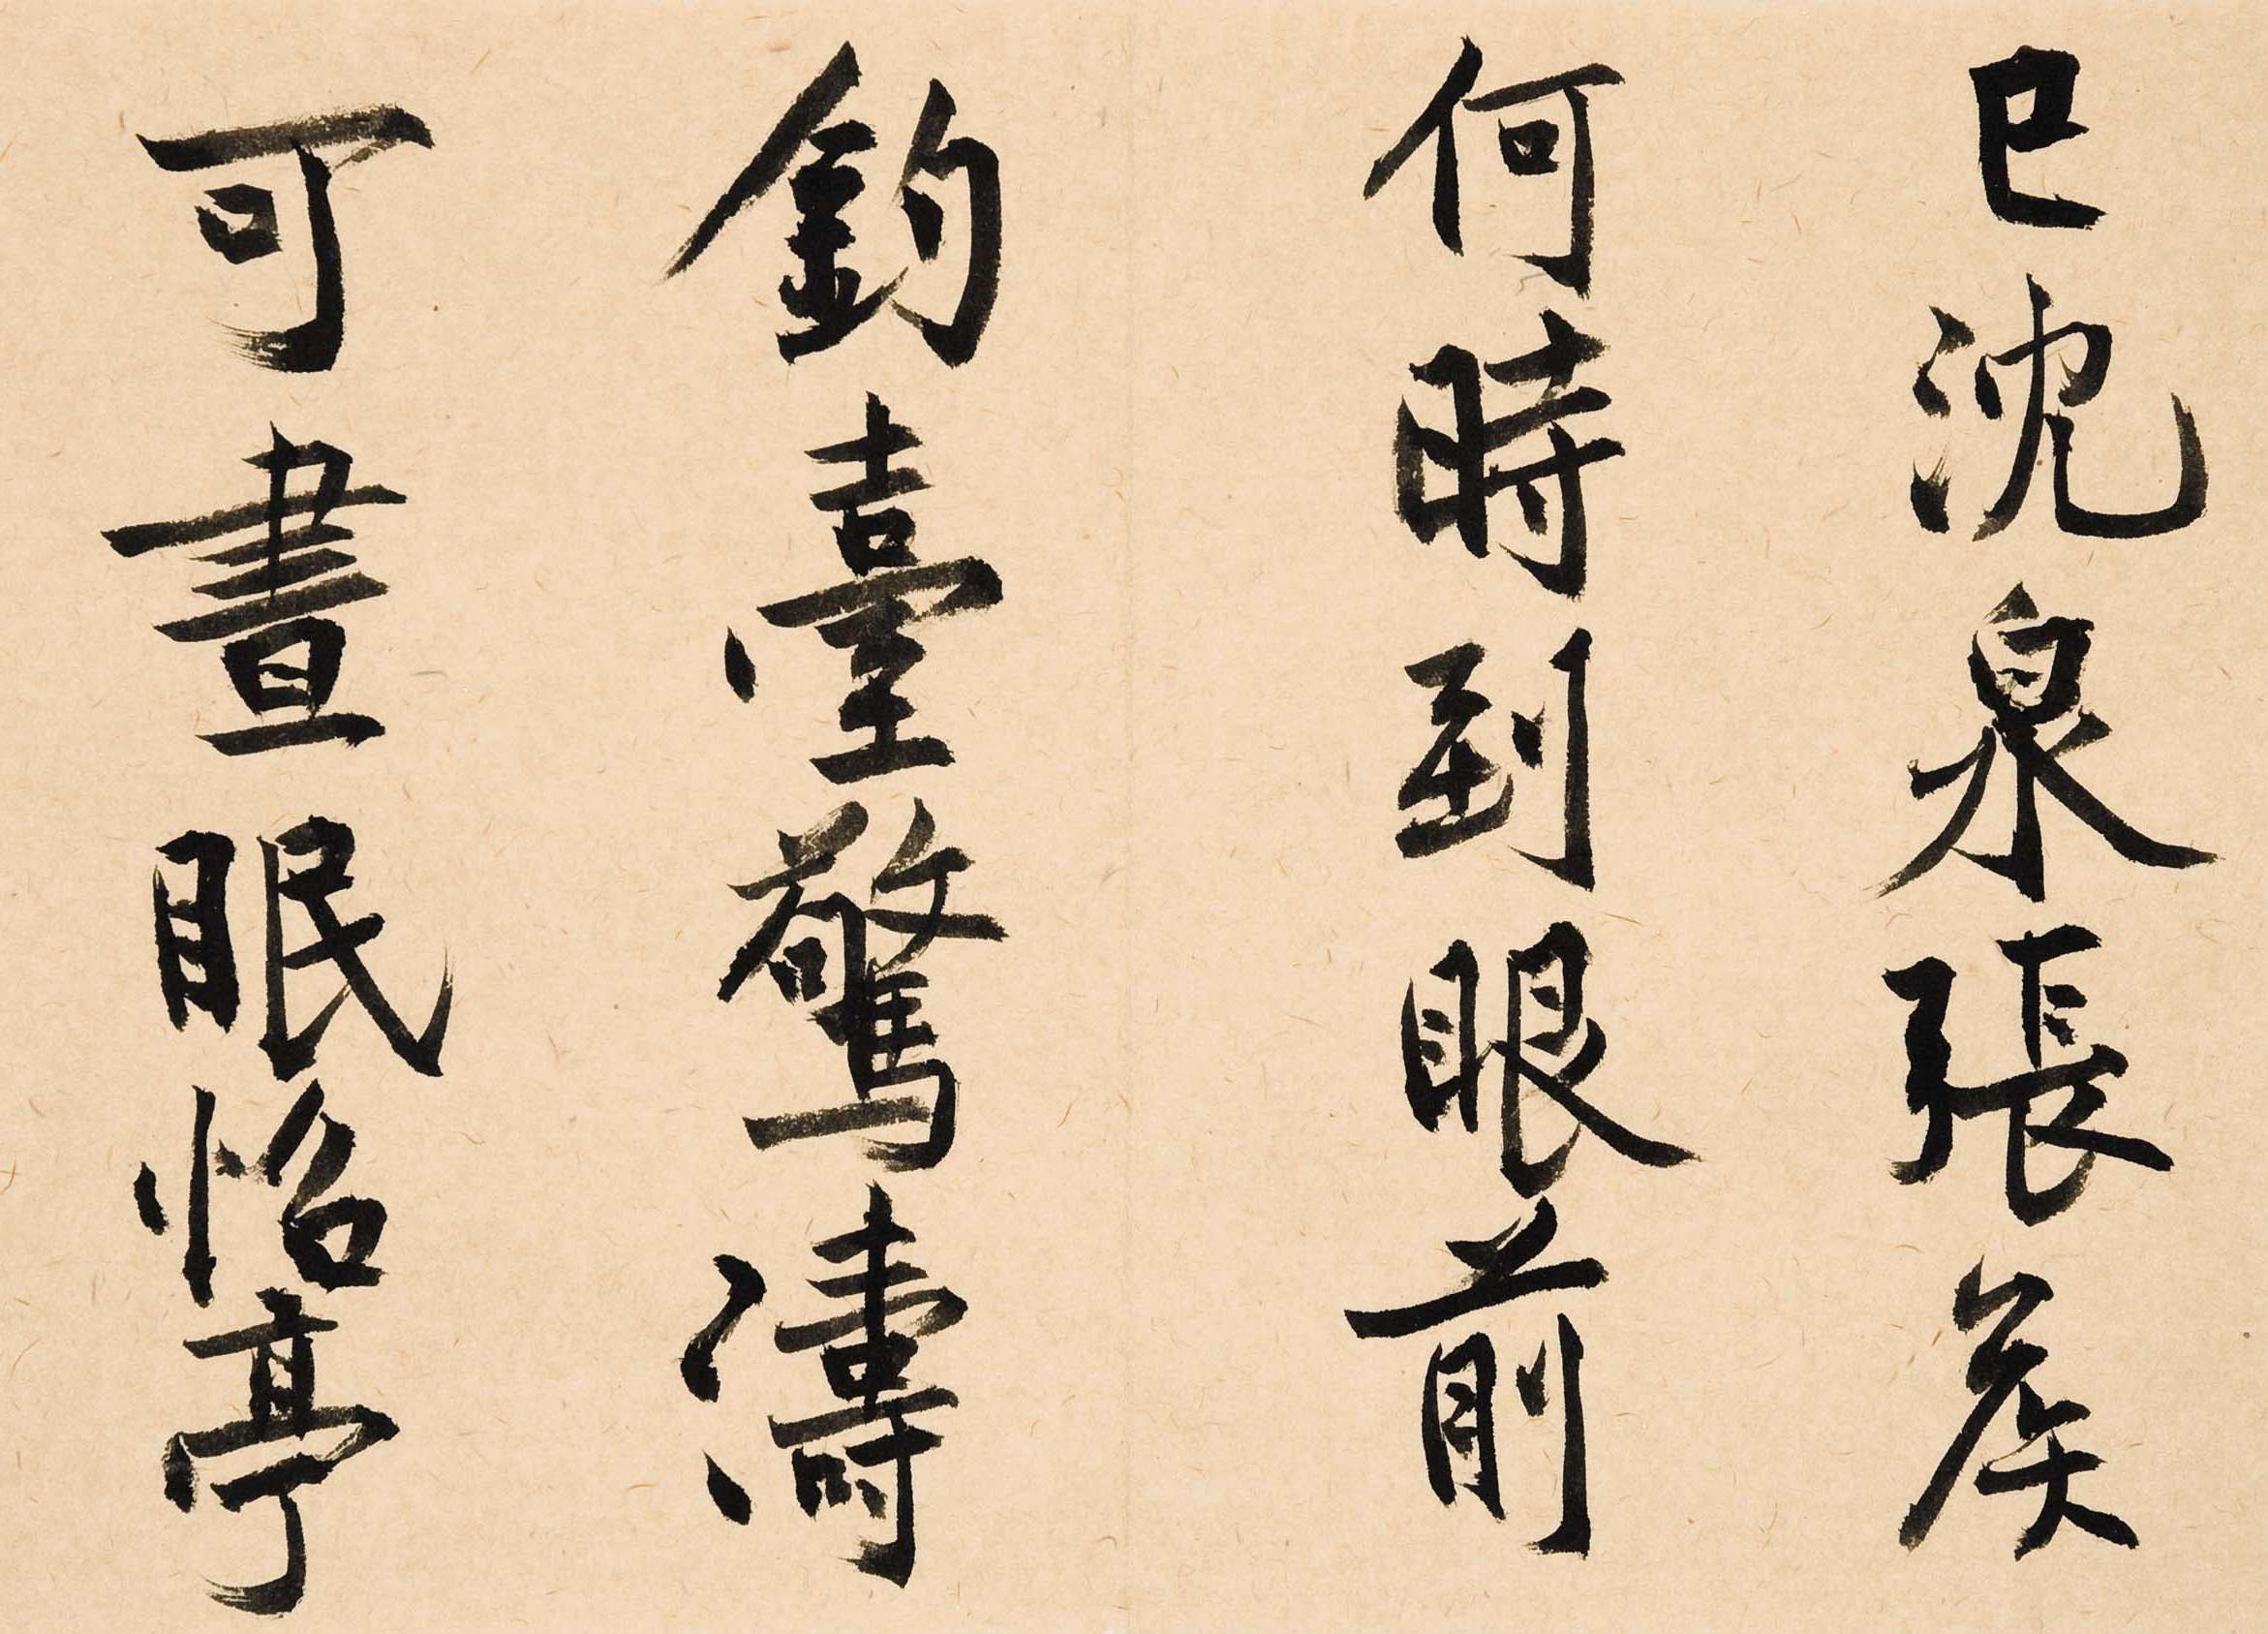 已沈泉張矦
何時到眼前
釣臺驚濤
可晝眠怡亭